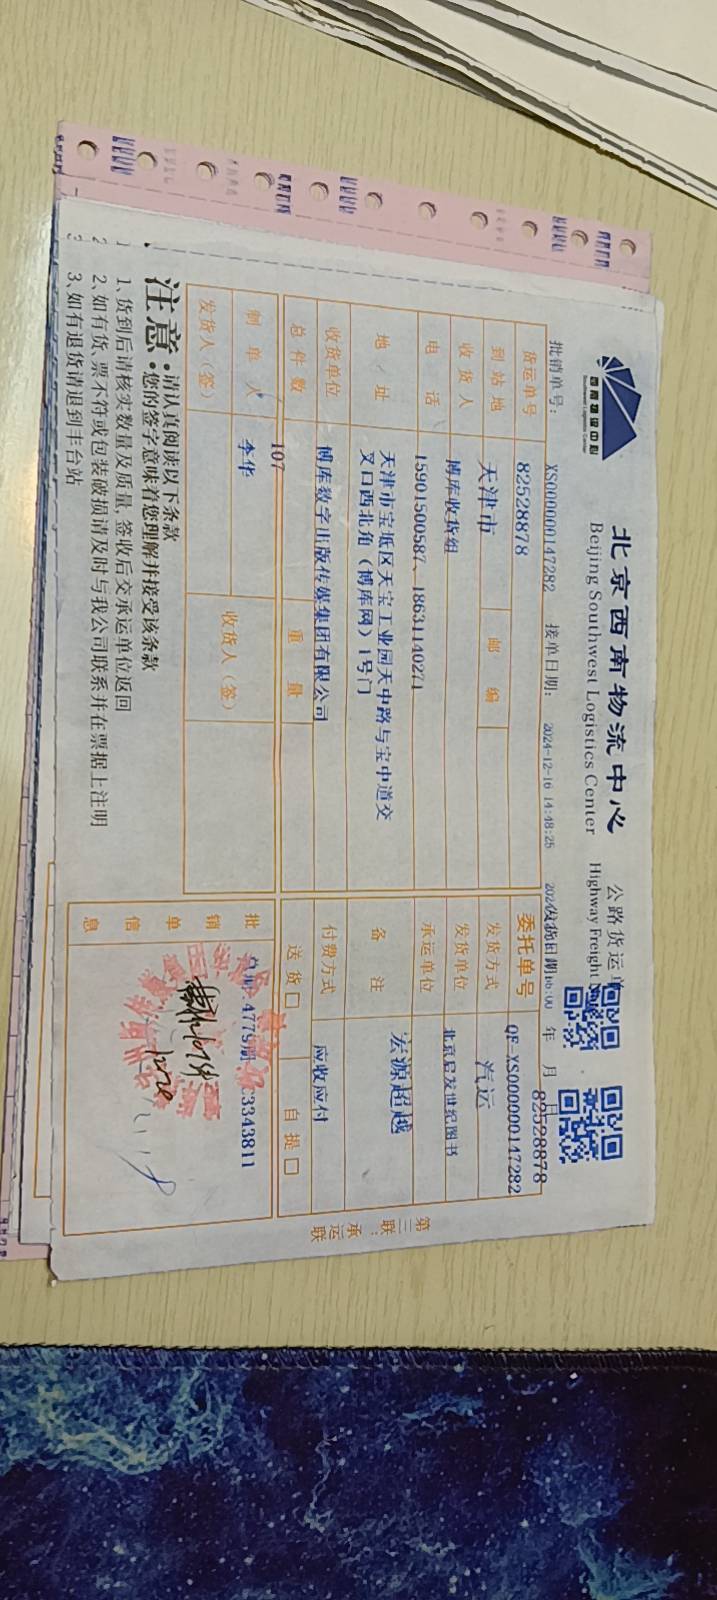 西南物流中心
Southwest Logistics Center
北京西南物流中心 公路货运单
Beijing Southwest Logistics Center Highway Freight
批销单号: XS000000147282 接单日期: 2024-12-16 14:48:25 发货日期 年 月 日
82528878
货运单号 82528878 委托单号 QF-XS000000147282
到站地 天津市 邮编 发货方式 汽运
收货人 博库收货组 发货单位 北京启发世纪图书
电话 15901500587、18631140271 承运单位
地址 天津市宝坻区天宝工业园天中路与宝中道交
叉口西北角（博库网）1号门
备注 宏源超越
收货单位 博库数字出版传媒集团有限公司 付费方式 应收应付
总件数 107 重量 送货□ 自提□
制单人 李华 收货人（签）
发货人（签）
批销单信息 4775期 C3343811
第三联：承运联
注意：请认真阅读以下条款
您的签字意味着您理解并接受该条款
1、货到后请核实数量及质量，签收后交承运单位返回
2、如有货、票不符或包装破损请及时与我公司联系并在票据上注明
3、如有退货请退到丰台站